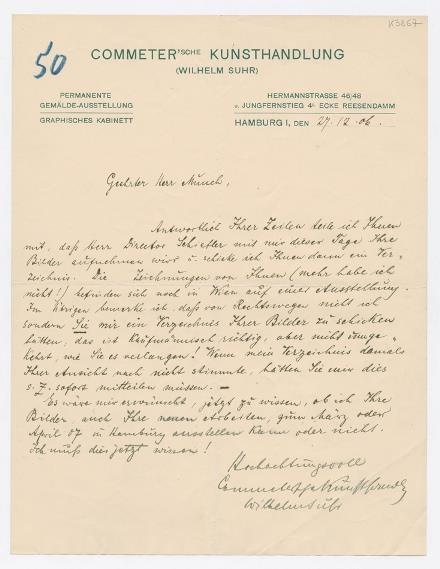 K3867
50
COMMETER'SCHE KUNSTHANDLUNG
(WILHELM SUHR)
PERMANENTE
GEMÄLDE-AUSSTELLUNG
GRAPHISCHES KABINETT
HERMANNSTRASSE 46/48
v. JUNGFERNSTIEG 4. ECKE REESENDAMM
HAMBURG I, DEN 27.12.06.
Geehrter Herr Munch,
Antwortlich Ihrer Zeilen teile ich Ihnen
mit, daß Herr Director Schiefler mit mir dieser Tage Ihre
Bilder aufnehmen wird u. schicke ich Ihnen dann ein Ver-
zeichnis. Die Zeichnungen von Ihnen (mehr habe ich
nicht!) befinden sich noch in Wien auf einer Ausstellung.
Im Übrigen bemerke ich, daß von Rechtswegen nicht ich
sondern Sie mir ein Verzeichnis Ihrer Bilder zu schicken
hätten, das ist kaufmännisch richtig, aber nicht umge-
kehrt, wie Sie es verlangen! Wenn mein Verzeichnis damals
Ihrer Ansicht nach nicht stimmte, hätten Sie mir dies
s. Z. sofort mitteilen müssen. —
Es wäre mir erwünscht, jetzt zu wissen, ob ich Ihre
Bilder auch Ihre neuen Arbeiten, zum März oder
April 07 in Hamburg ausstellen kann oder nicht.
Ich muß dies jetzt wissen!
Hochachtungsvoll
Commeter'sche Kunsthandlg
Wilhelm Suhr